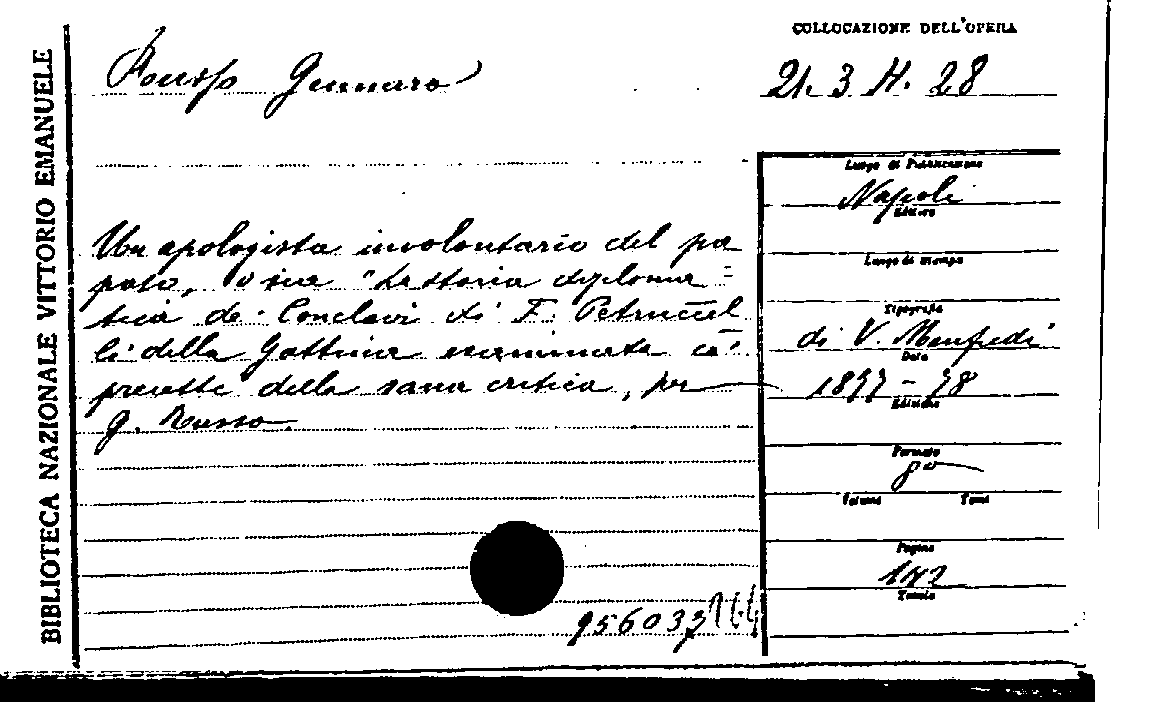 BIBLIOTECA NAZIONALE VITTORIO EMANUELE
COLLOCAZIONE DELL'OPERA
Russo Gennaro
21. 3 H. 28
Un apologista involontario del pa
pato, o sia "La storia diploma=
tica de' Conclavi di F. Petruccel
li della Gattina esaminata co'
precetti della sana critica, per
G. Russo.
Luogo di Pubblicazione
Napoli
Editore
Luogo di stampa
Tipografia
di V. Manfredi
Data
1877-78
Edizione
Formato
8º
Volume Tomi
Pagine
142
Tavole
956033